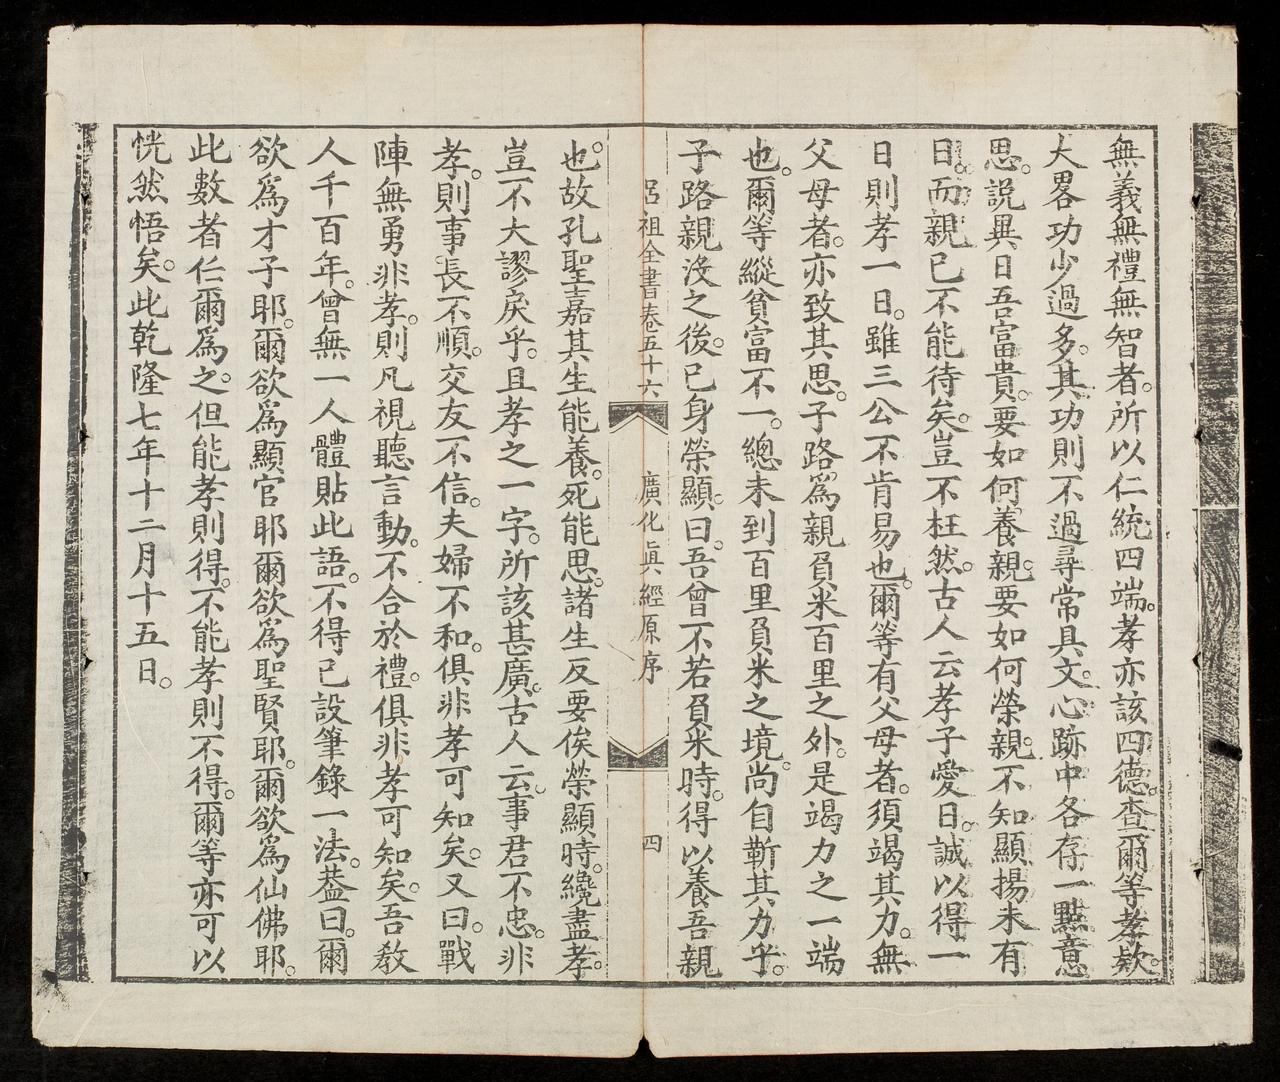 無義無禮無智者。所以仁統四端。孝亦該四德。查爾等孝欵。
大畧功少過多。其功則不過尋常具文。心跡中各存一點意
思。説異日吾富貴。要如何養親。要如何榮親。不知顯揚未有
日。而親已不能待矣。豈不枉然。古人云孝子愛日。誠以得一
日則孝一日。雖三公不肯易也。爾等有父母者。須竭其力。無
父母者。亦致其思。子路爲親負米百里之外。是竭力之一端
也。爾等縱貧富不一。總未到百里負米之境。尚自靳其力乎。
子路親沒之後。已身榮顯。曰。吾曾不若負米時。得以養吾親
呂祖全書卷五十六 廣化眞經原序 四
也。故孔聖嘉其生能養。死能思。諸生反要俟榮顯時。纔盡孝。
豈不大謬戾乎。且孝之一字。所該甚廣。古人云。事君不忠。非
孝。則事長不順。交友不信。夫婦不和。俱非孝可知矣。又曰。戰
陣無勇非孝。則凡視聽言動。不合於禮。俱非孝可知矣。吾教
人千百年。曾無一人體貼此語。不得已設筆錄一法。葢曰。爾
欲爲才子耶。爾欲爲顯官耶爾欲爲聖賢耶。爾欲爲仙佛耶。
此數者任爾爲之。但能孝則得。不能孝則不得。爾等亦可以
恍然悟矣。此乾隆七年十二月十五日。